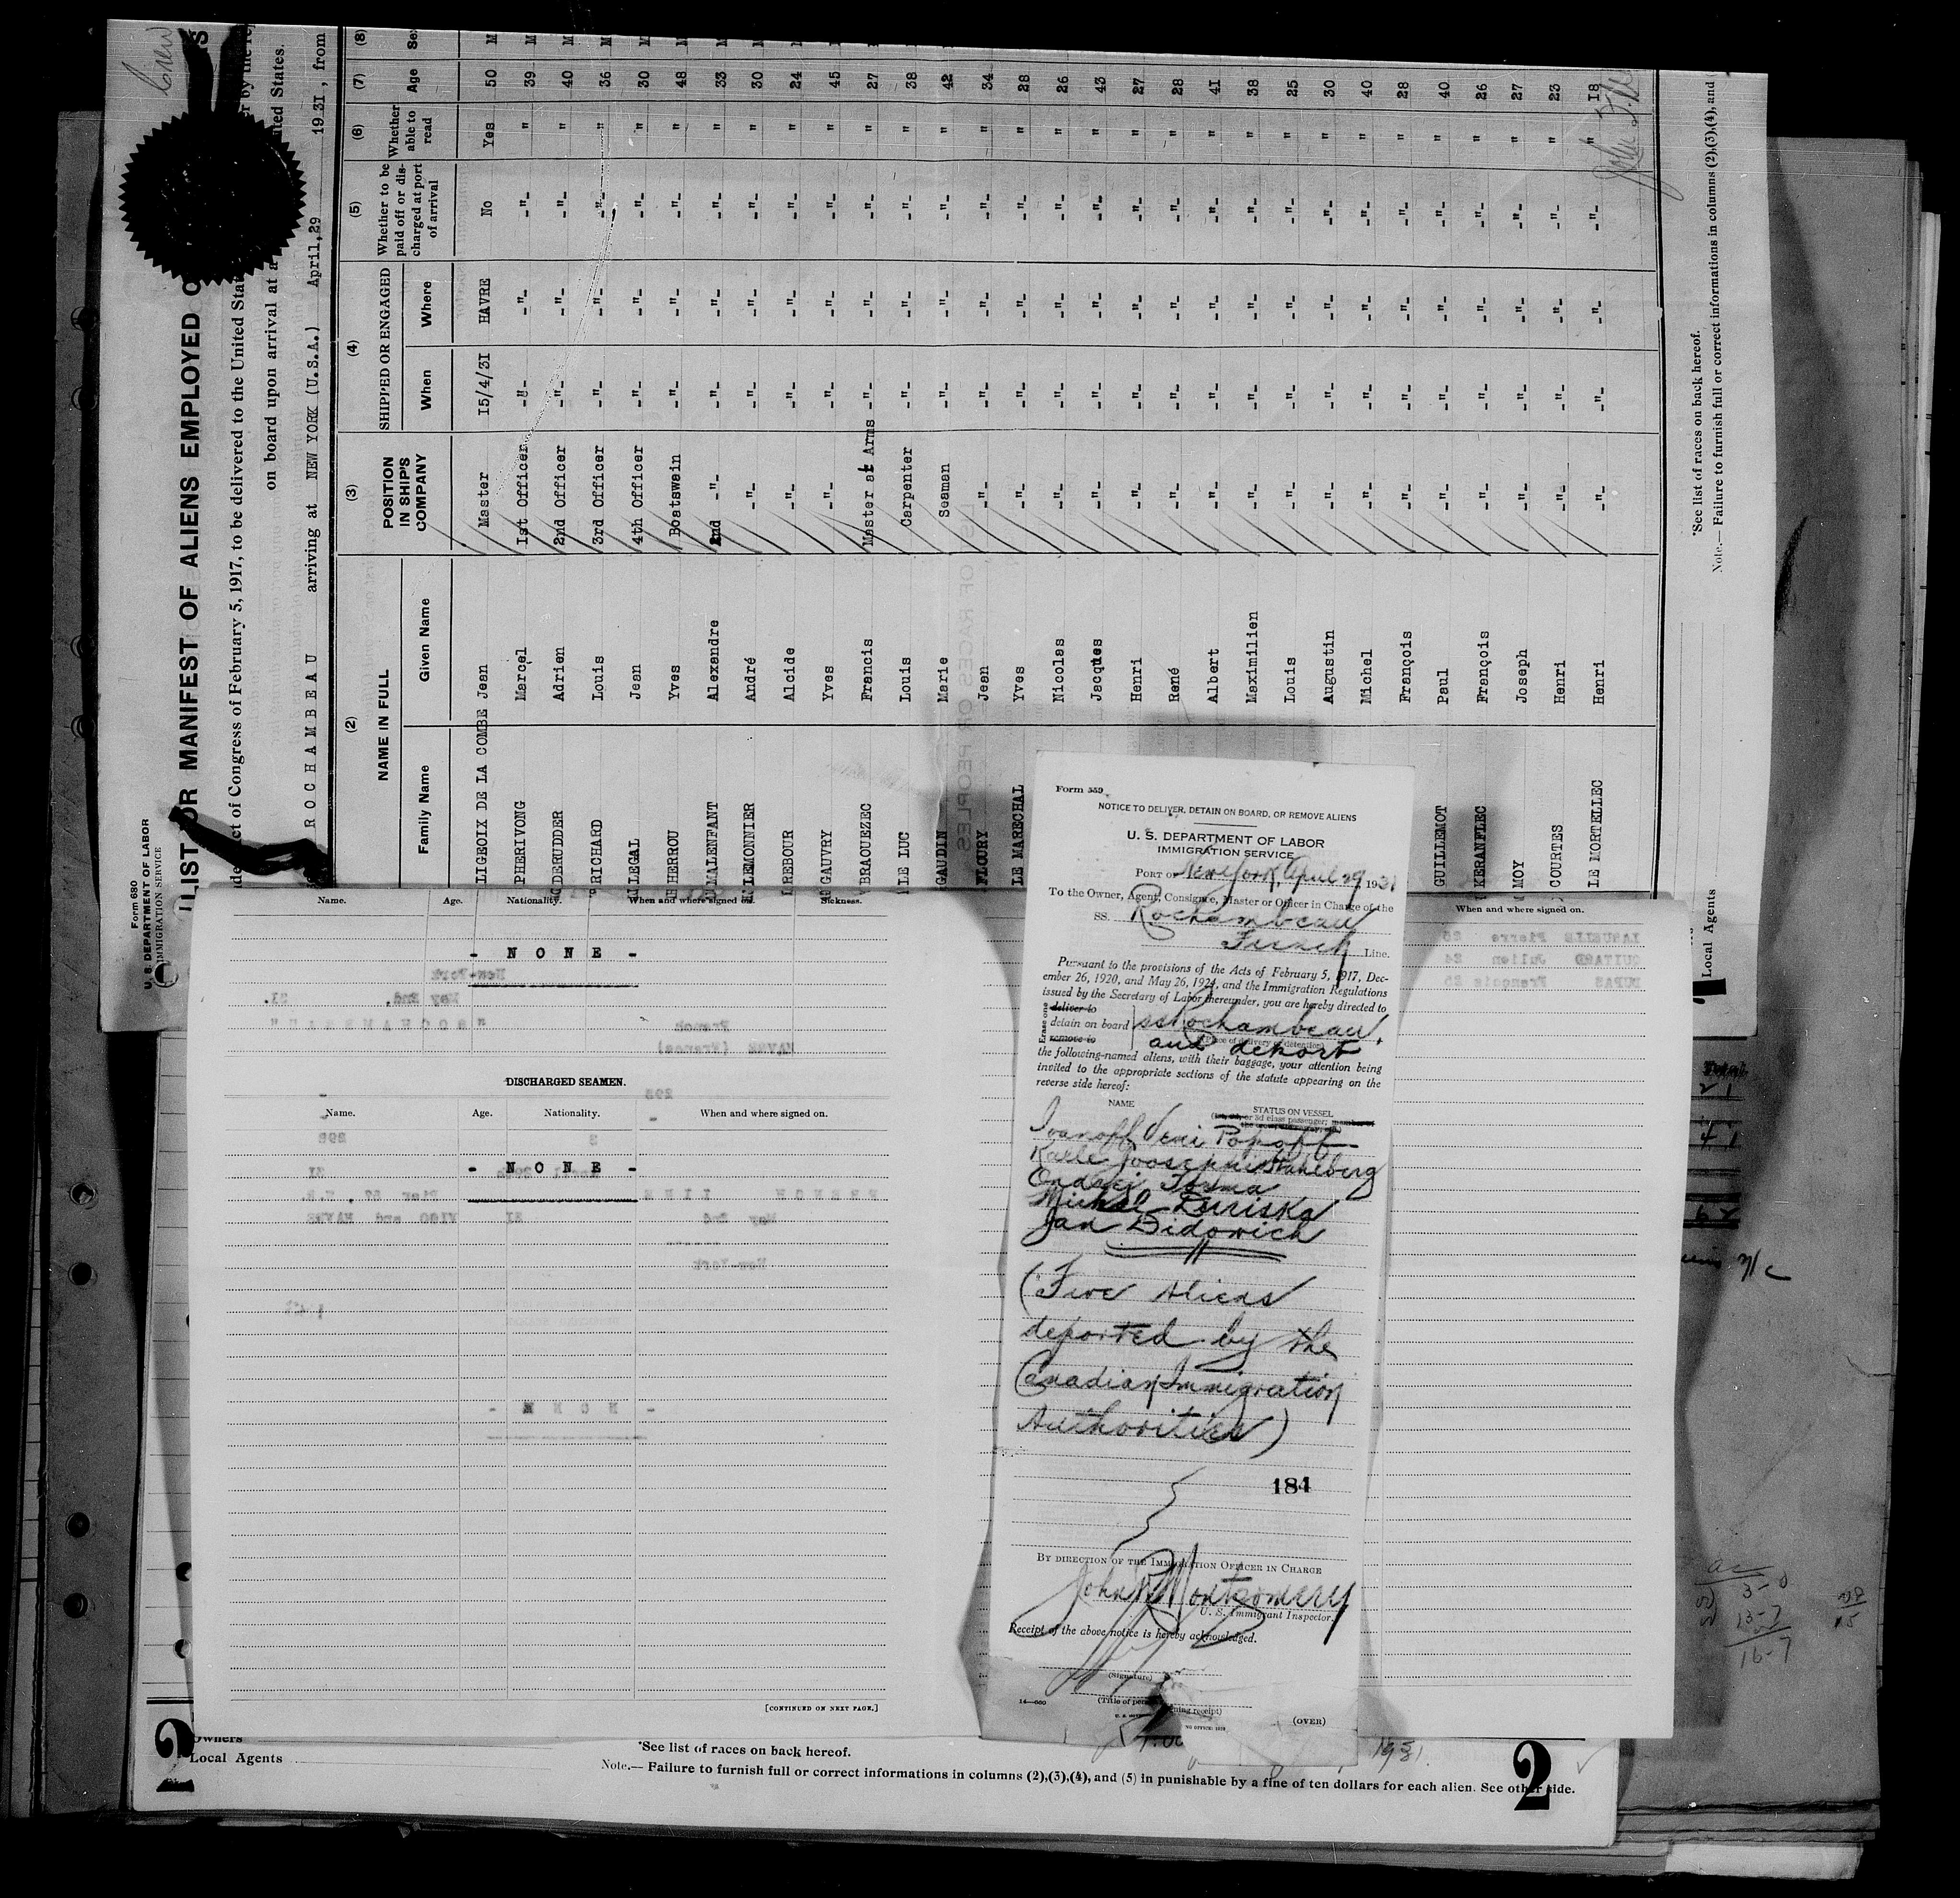 Form 680
U. S. DEPARTMENT OF LABOR
IMMIGRATION SERVICE
Crew
LIST OR MANIFEST OF ALIENS EMPLOYED O
ct of Congress of February 5, 1917, to be delivered to the United Stat
er by the re
on board upon arrival at a
ited States.
ROCHAMBEAU arriving at NEW YORK (U.S.A.) April,29 1931, from
(2) (3) (4) (5) (6) (7) (8)
NAME IN FULL POSITION IN SHIP'S COMPANY SHIPPED OR ENGAGED Whether to be paid off or discharged at port of arrival Whether able to read Age Sex
Family Name Given Name When Where
LIGEOIX DE LA COMBE Jean Master 15/4/31 HAVRE No Yes 50 M
PHERIVONG Marcel 1st Officer -"- -"- -"- " 39 M
DERUDDER Adrien 2nd Officer -"- -"- -"- " 40 M
RICHARD Louis 3rd Officer -"- -"- -"- " 36 M
LEGAL Jean 4th Officer -"- -"- -"- " 30 M
HERROU Yves Boatswain -"- -"- -"- " 48 M
MALENFANT Alexandre 2nd -"- -"- -"- -"- " 33 M
LEMONNIER André -"- -"- -"- -"- " 30 M
REBOUR Alcide -"- -"- -"- -"- " 24
GAUVRY Yves -"- -"- -"- -"- " 45
BRAOUEZEC Francis Master at Arms -"- -"- -"- " 27
LE LUC Louis Carpenter -"- -"- -"- " 38
GAUDIN Marie Seaman -"- -"- -"- " 42
FLOURY Jean -"- -"- -"- -"- " 34
LE MARECHAL Yves -"- -"- -"- -"- " 28
Nicolas -"- -"- -"- -"- " 26
Jacques -"- -"- -"- -"- " 43
Henri -"- -"- -"- -"- " 27
René -"- -"- -"- -"- " 28
Albert -"- -"- -"- -"- " 41
Maximilien -"- -"- -"- -"- " 38
Louis -"- -"- -"- -"- " 25
Augustin -"- -"- -"- -"- " 30
Michel -"- -"- -"- -"- " 40
François -"- -"- -"- -"- " 28
GUILLEMOT Paul -"- -"- -"- -"- " 40
KERANFLEC François -"- -"- -"- -"- " 26
MOY Joseph -"- -"- -"- -"- " 27
COURTES Henri -"- -"- -"- -"- " 23
LE MORTELLEC Henri -"- -"- -"- -"- " 18
*See list of races on back hereof.
Note.— Failure to furnish full or correct informations in columns (2),(3),(4), and
Local Agents
Name. Age. Nationality. When and where signed on. Sickness.
- NONE -
DISCHARGED SEAMEN.
Name. Age. Nationality. When and where signed on.
- NONE -
[CONTINUED ON NEXT PAGE.]
When and where signed on.
Form 559
NOTICE TO DELIVER, DETAIN ON BOARD, OR REMOVE ALIENS
U. S. DEPARTMENT OF LABOR
IMMIGRATION SERVICE
PORT OF New York, April 29, 1931
To the Owner, Agent, Consignee, Master or Officer in Charge of the
SS. Rochambeau
French Line.
Pursuant to the provisions of the Acts of February 5, 1917, Dec-
ember 26, 1920, and May 26, 1924, and the Immigration Regulations
issued by the Secretary of Labor thereunder, you are hereby directed to
Erase one
deliver to
detain on board
remove to
ss Rochambeau,
and deport
(Place of delivery or detention)
the following-named aliens, with their baggage, your attention being
invited to the appropriate sections of the statute appearing on the
reverse side hereof:
NAME STATUS ON VESSEL
Ivanoff Veni Popoff
Kalle Joosephi Stahlberg
Ondrej Tosma
Michal Duriska
Jan Didowich
(Five Aliens
deported by the
Canadian Immigration
Authorities)
184
BY DIRECTION OF THE IMMIGRATION OFFICER IN CHARGE
John R Montgomery
U. S. Immigrant Inspector.
Receipt of the above notice is hereby acknowledged.
(Signature)
14—560
(OVER)
1931.
ac
3-0
13-7
16-7
2
Owners
Local Agents
*See list of races on back hereof.
Note.— Failure to furnish full or correct informations in columns (2),(3),(4), and (5) in punishable by a fine of ten dollars for each alien. See other side.
2